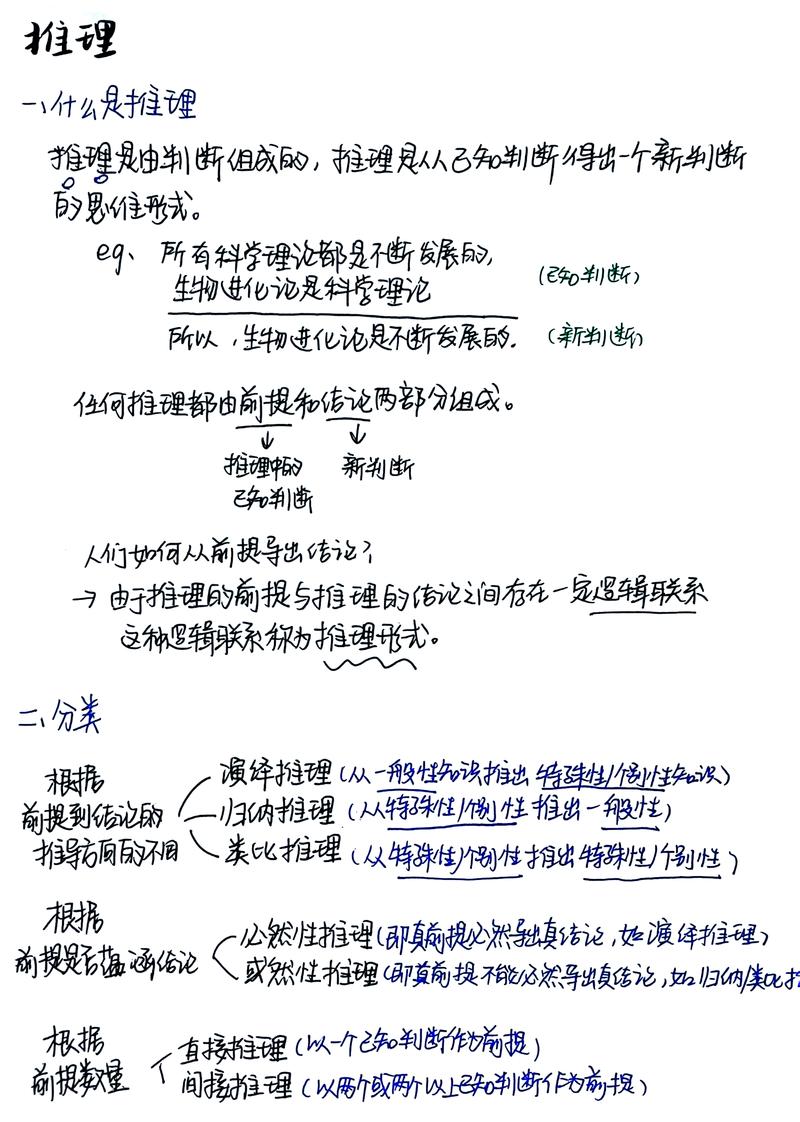 推理
一、什么是推理
推理是由判断组成的，推理是从已知判断得出一个新判断
的思维形式。
eg、所有科学理论都是不断发展的，
生物进化论是科学理论
(已知判断)
所以，生物进化论是不断发展的. (新判断)
任何推理都由前提和结论两部分组成。
↓ ↓
推理中的 新判断
已知判断
人们如何从前提导出结论？
→ 由于推理的前提与推理的结论之间存在一定逻辑联系
这种逻辑联系称为推理形式。
二、分类
根据
前提到结论的
推导方面的不同
演绎推理(从一般性知识推出特殊性/个别性知识)
归纳推理(从特殊性/个别性推出一般性)
类比推理(从特殊性/个别性推出特殊性/个别性)
根据
前提是否蕴涵结论
必然性推理(即真前提必然导出真结论,如演绎推理)
或然性推理(即真前提不能必然导出真结论,如归纳/类比
根据
前提数量
直接推理(以一个已知判断作为前提)
间接推理(以两个或两个以上已知判断作为前提)